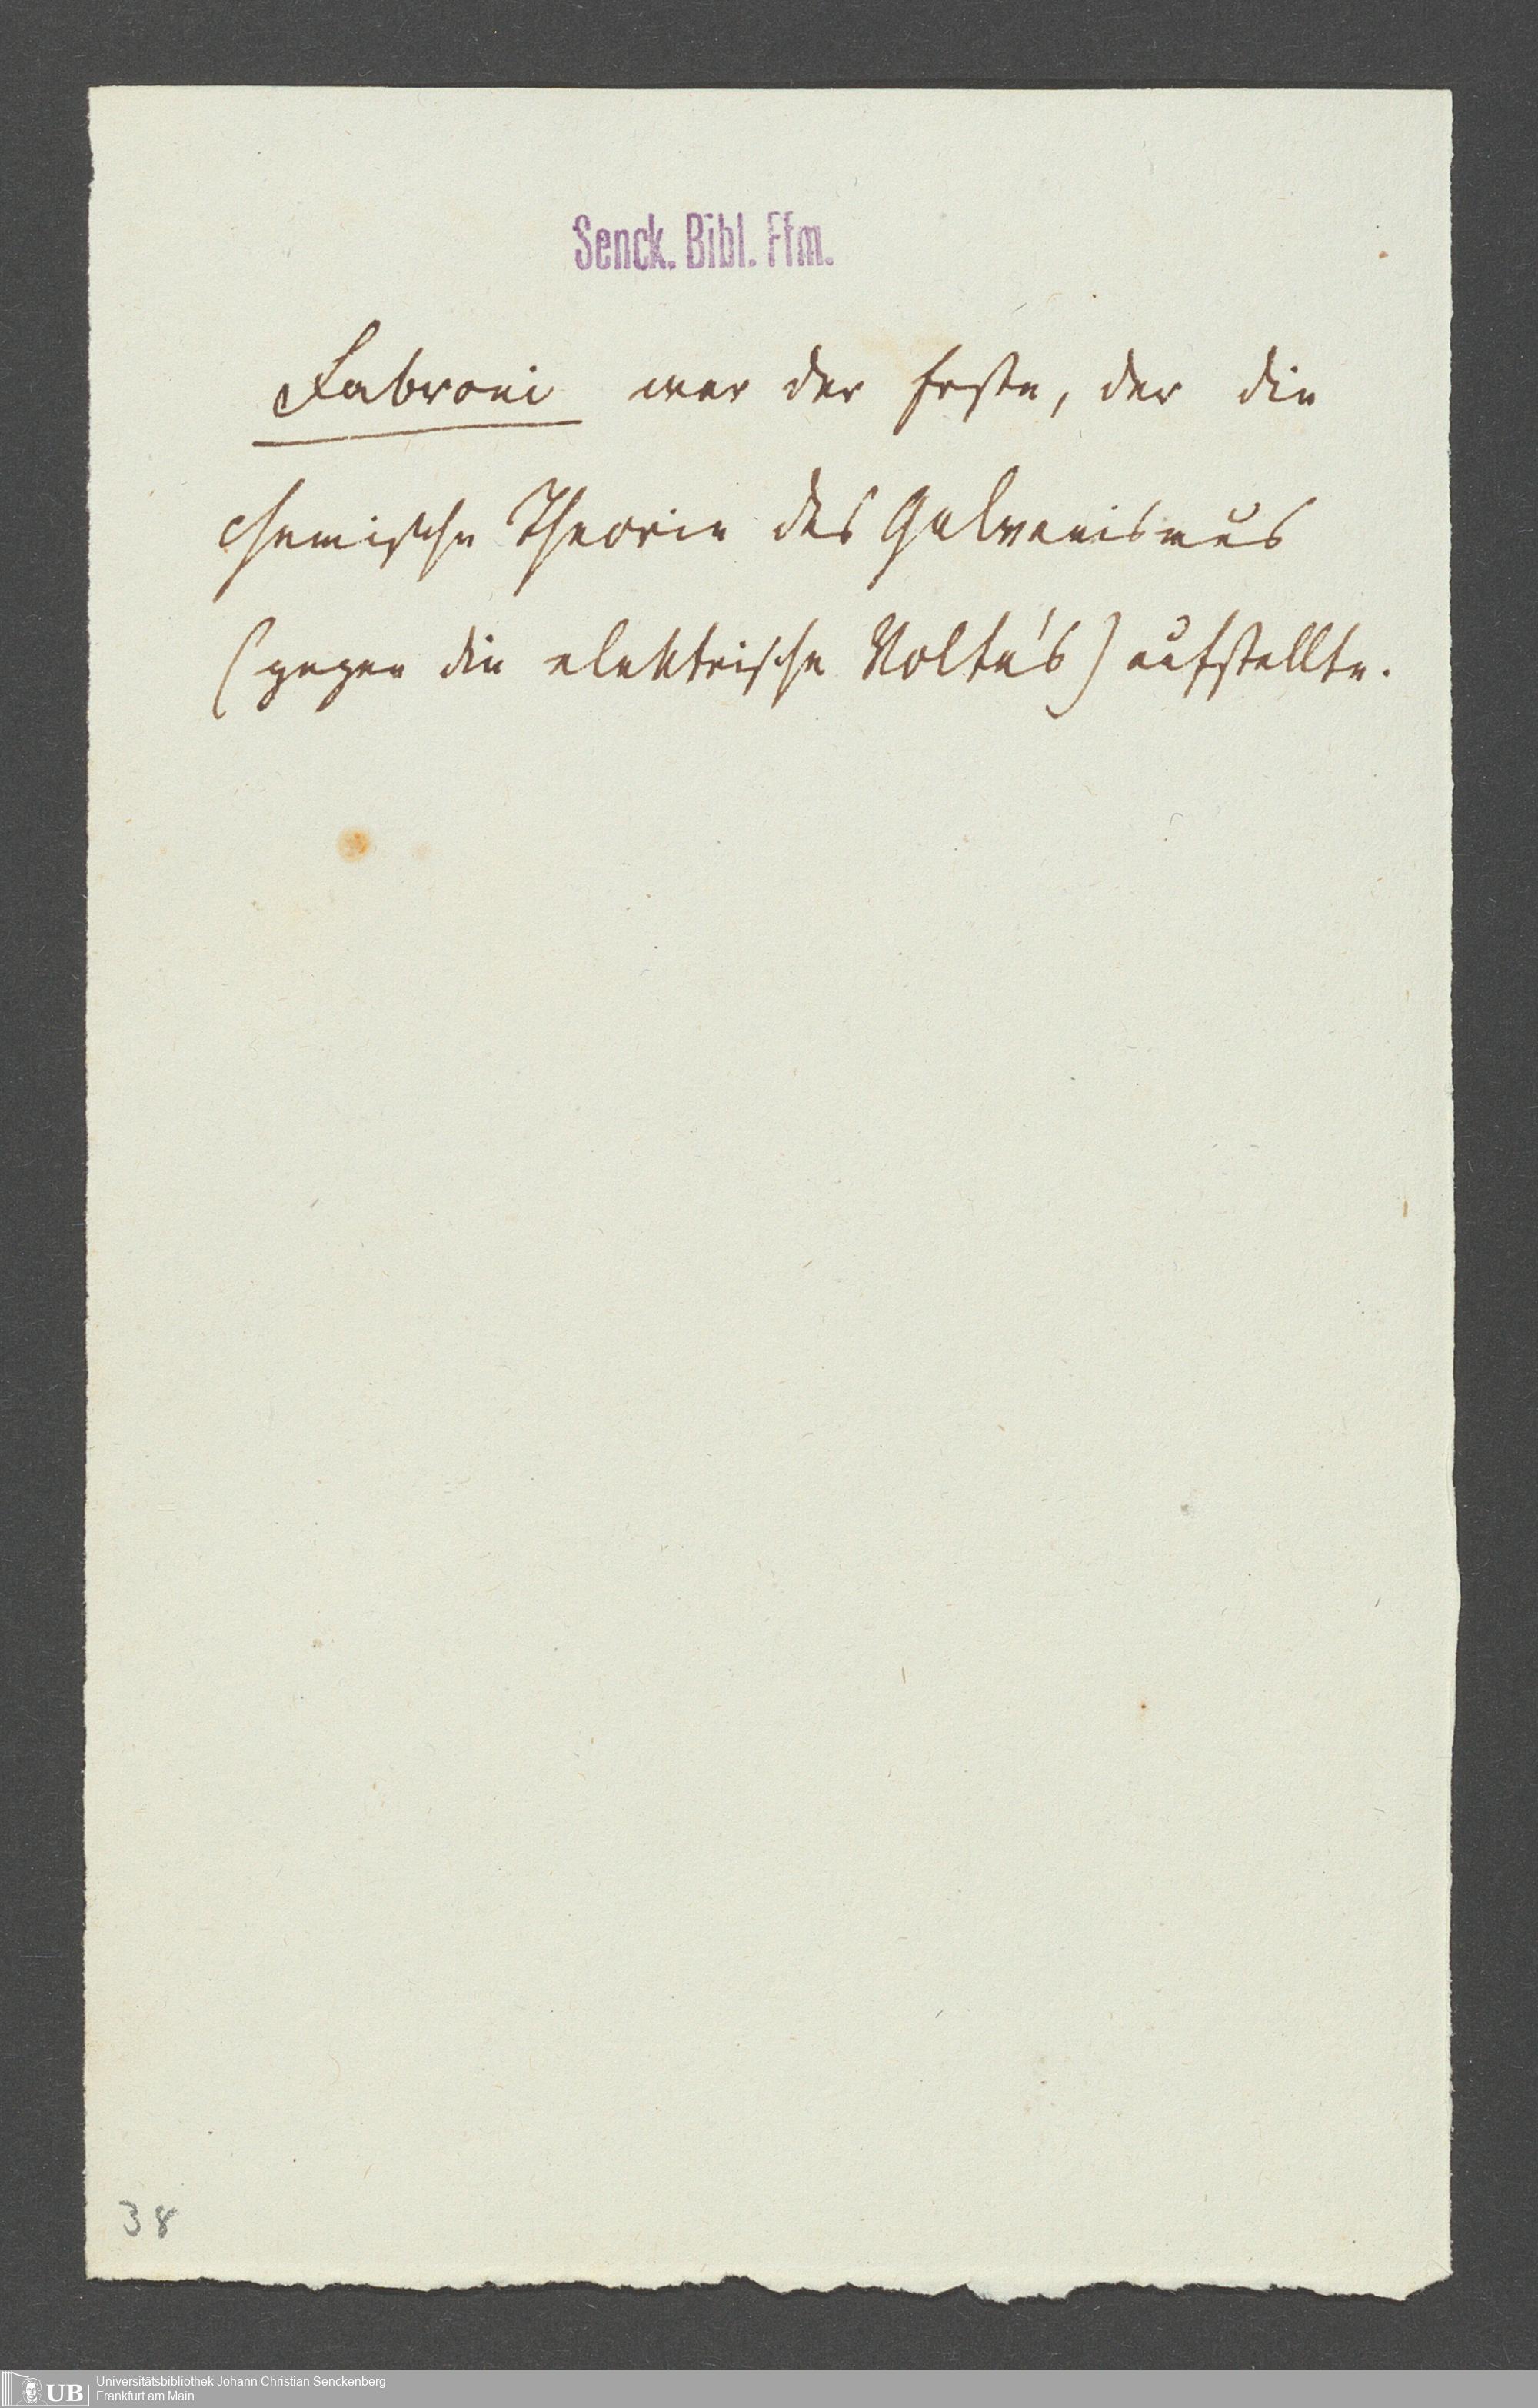 Senck. Bibl. Ffm.
Fabroni war der Erste, der die
chemische Theorie des Galvanismus
(gegen die elektrische Volta's) aufstellte.
38
UB Universitätsbibliothek Johann Christian Senckenberg
Frankfurt am Main